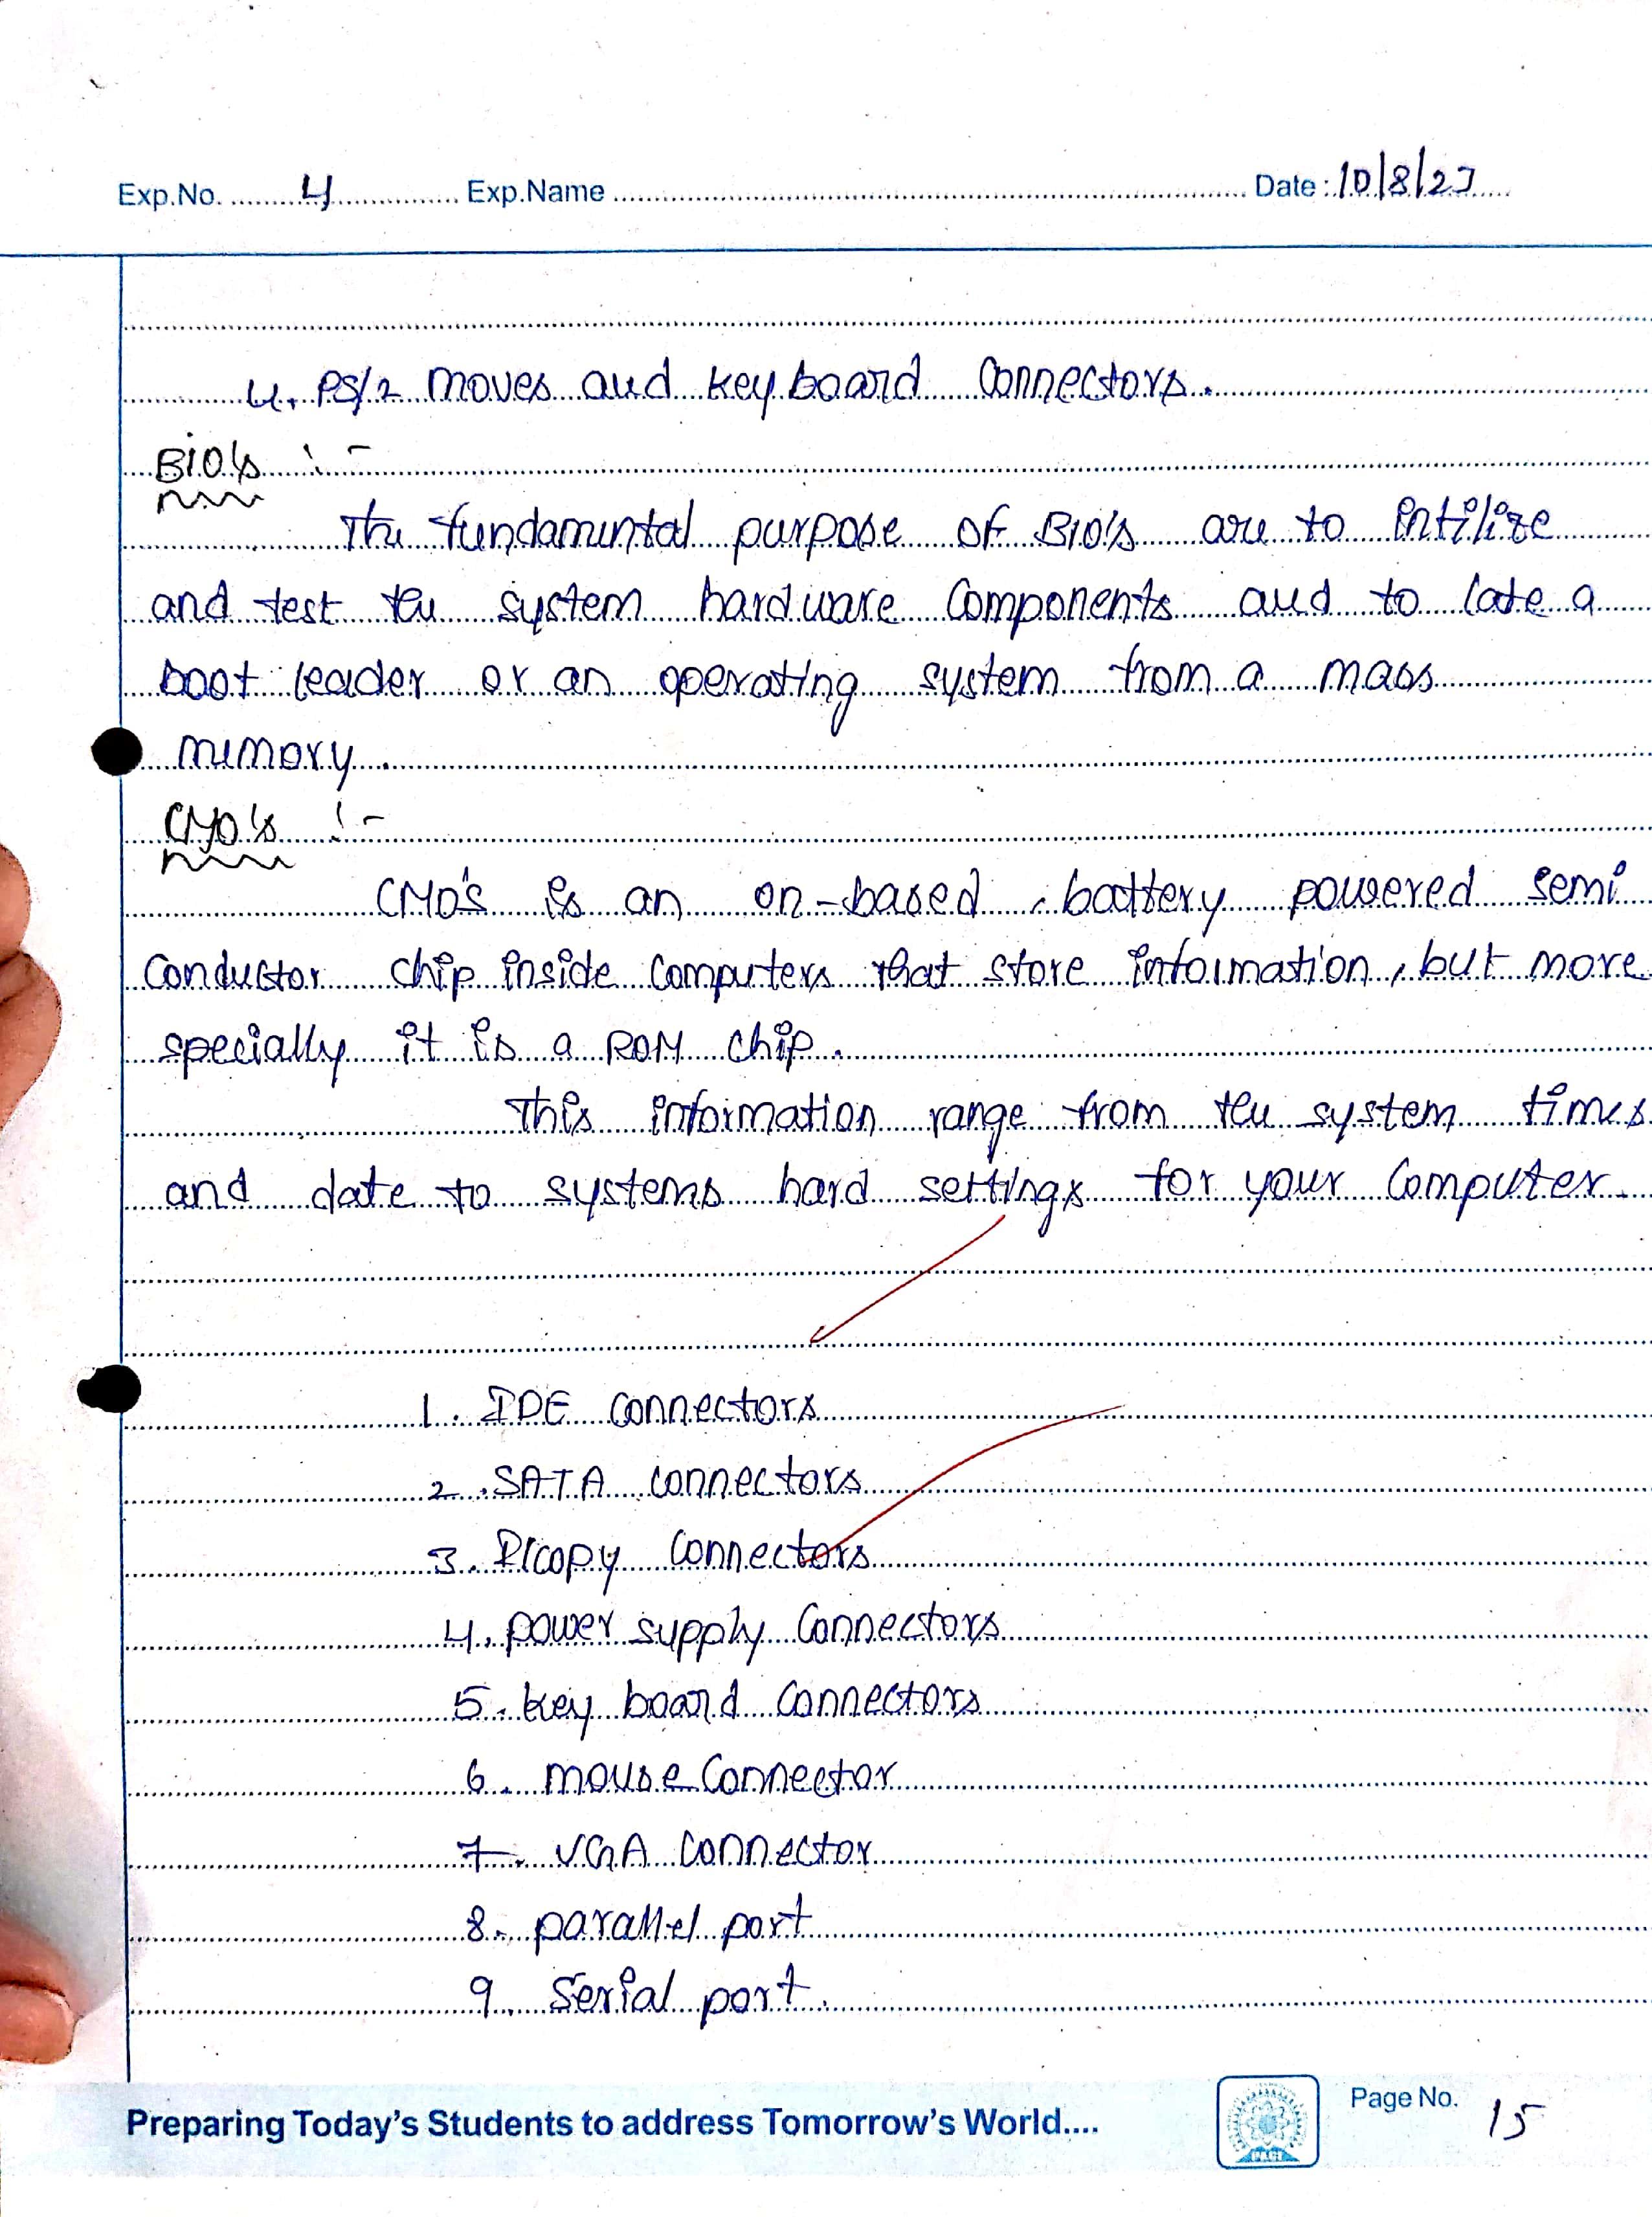 Exp.No. 4 Exp.Name Date: 10/8/23
4. PS/2 moves and key board Connectors.
BIO's :-
The fundamuntal purpose of BIO's are to intilize
and test the system hardware Components and to late a
boot leader or an operating system from a mass
mimory.
CMO's :-
CMO's is an on-based, battery powered semi
Conductor chip inside Computers that store information, but more
specially it is a ROM chip.
This information range from the system times
and date to systems hard settings for your Computer.
1. IDE Connectors
2. SATA Connectors
3. Connectors
4. power supply Connectors
5. key board Connectors
6. mouse Connector
7. VGA Connector
8. parallel port
9. Serial port.
Preparing Today's Students to address Tomorrow's World....
Page No. 15